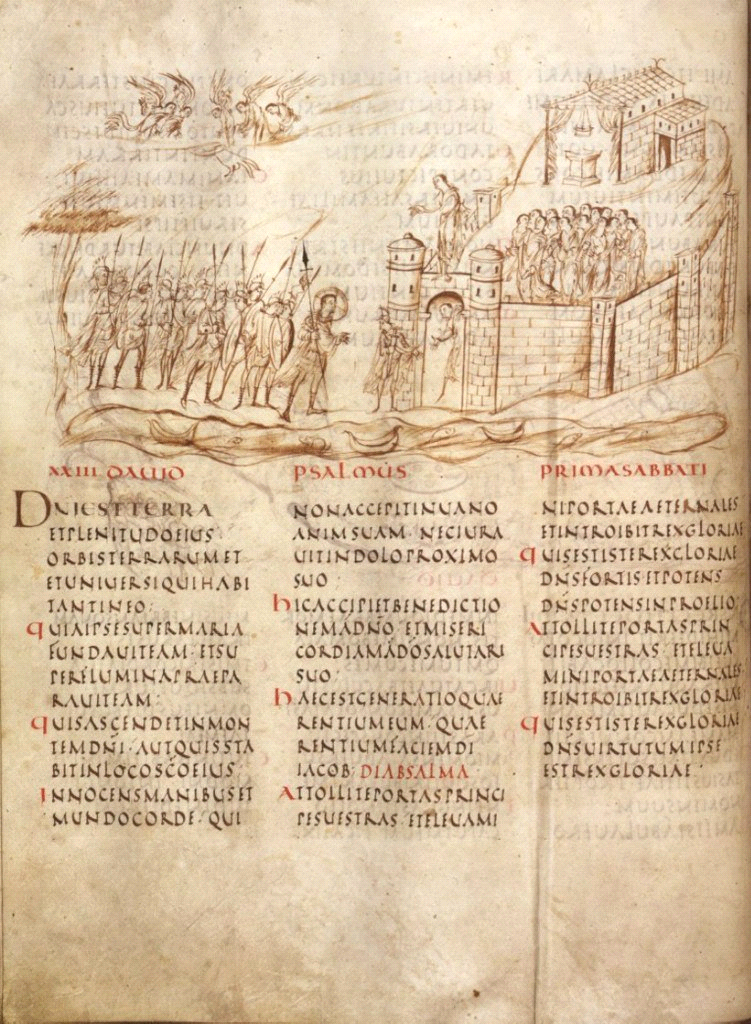 XXIII DAUID PSALMUS PRIMA SABBATI
DNI EST TERRA
ET PLENITUDO EIUS
ORBIS TERRARUM ET
ET UNIUERSI QUI HABI
TANT IN EO:
QUIA IPSE SUPER MARIA
FUNDAUIT EAM· ET SU
PER FLUMINA PRAEPA
RAUIT EAM:
QUIS ASCENDET IN MON
TEM DNI· AUT QUIS STA
BIT IN LOCO SCO EIUS·
INNOCENS MANIBUS ET
MUNDO CORDE· QUI
NON ACCEPIT IN UANO
ANIM SUAM· NEC IURA
UIT IN DOLO PROXIMO
SUO·
HIC ACCIPIET BENEDICTIO
NEM A DNO· ET MISERI
CORDIAM A DO SALUTARI
SUO·
HAEC EST GENERATIO QUAE
RENTIUM EUM· QUAE
RENTIUM FACIEM DI
IACOB· DIABSALMA
ATTOLLITE PORTAS PRINCI
PES UESTRAS· ET ELEUAMI
NI PORTAE AETERNALES
ET INTROIBIT REX GLORIAE
QUIS EST ISTE REX GLORIAE
DNS FORTIS ET POTENS
DNS POTENS IN PROELIO·
ATTOLLITE PORTAS PRIN
CIPES UESTRAS· ET ELEUA
MINI PORTAE AETERNALES
ET INTROIBIT REX GLORIAE
QUIS EST ISTE REX GLORIAE
DNS UIRTUTUM IPSE
EST REX GLORIAE·